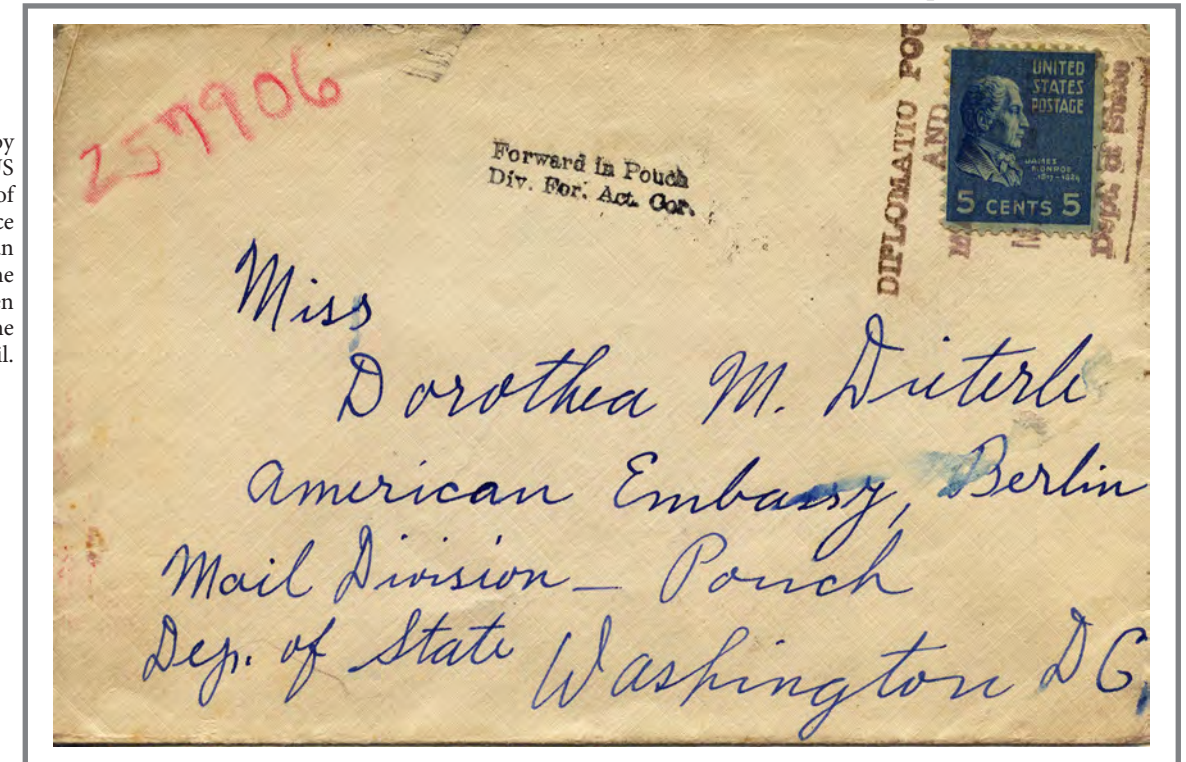 by
of
ce
an
ne
en
ne
il.
257906
Forward in Pouch
Div. For. Act. Cor.
DIPLOMATIC POU
AND
Dept. of State
UNITED
STATES
POSTAGE
JAMES
MONROE
5 CENTS 5
Miss
Dorothea M. Dieterle
American Embassy, Berlin
Mail Division – Pouch
Dep. of State Washington DC